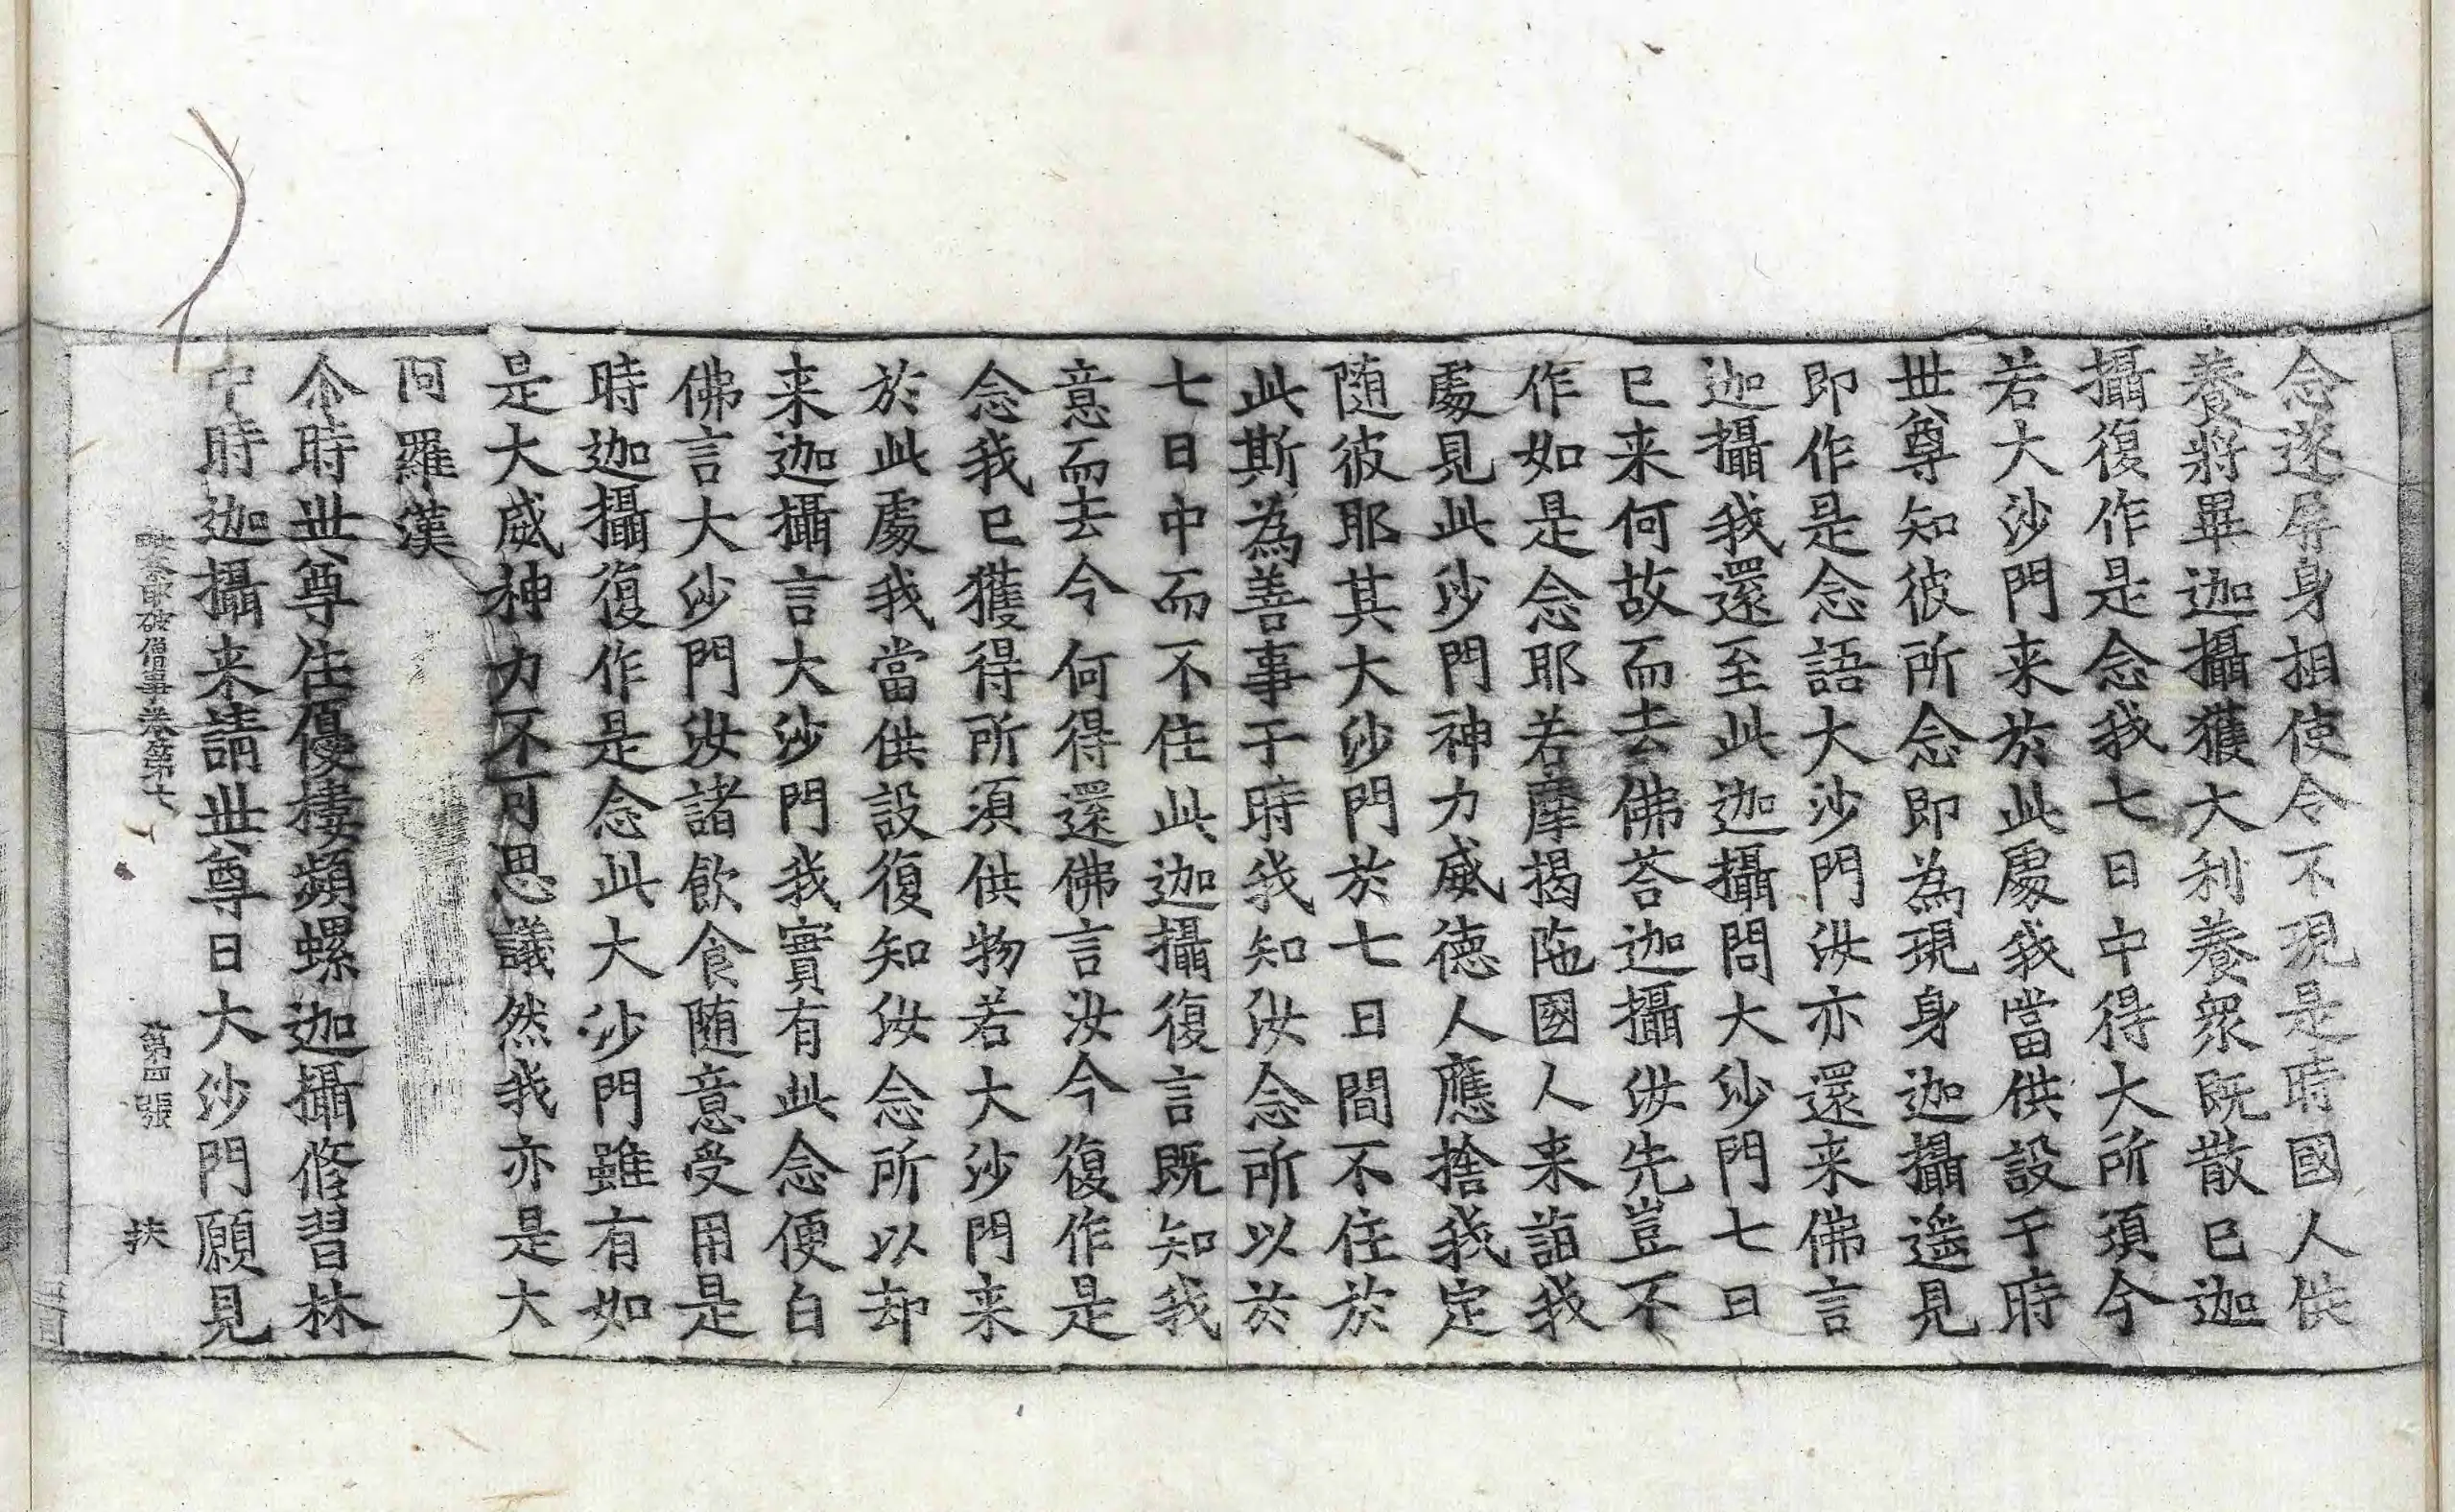 念遂屏身相使令不現是時國人供
養將畢迦攝獲大利養衆既散已迦
攝復作是念我七日中得大所須今
若大沙門来於此處我當供設于時
世尊知彼所念即為現身迦攝遥見
即作是念語大沙門汝亦還来佛言
迦攝我還至此迦攝問大沙門七日
已来何故而去佛荅迦攝汝先豈不
作如是念耶若摩揭陁國人来詣我
處見此沙門神力威德人應捨我定
随彼耶其大沙門於七日間不住於
此斯為善事于時我知汝念所以於
七日中而不住此迦攝復言既知我
意而去今何得還佛言汝今復作是
念我已獲得所須供物若大沙門来
於此處我當供設復知汝念所以却
来迦攝言大沙門我實有此念便白
佛言大沙門汝諸飲食随意受用是
時迦攝復作是念此大沙門雖有如
是大威神力不可思議然我亦是大
阿羅漢
尒時世尊住優樓頻螺迦攝脩習林
中時迦攝来請世尊曰大沙門願見
破僧事卷第七 第四張 扶